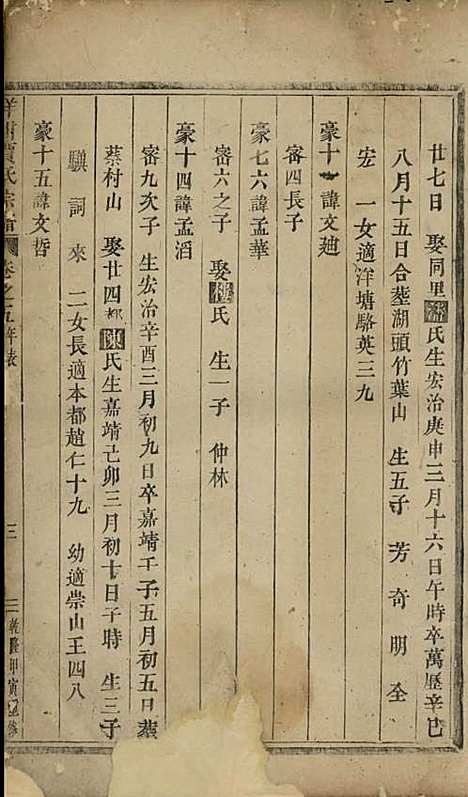 廿七日　娶同里氏生宏治庚申三月十六日午時卒萬歷辛巳
八月十五日合塟湖頭竹葉山　生五子　芳奇明全
宏　一女適洋塘駱英三九
豪十　諱文廸
審四長子
豪七六諱孟華
審六之子　娶樓氏　生一子　仲林
豪十四諱孟滔
審九次子　生宏治辛酉三月初九日卒嘉靖壬子五月初五日塟
蔡村山　娶廿四都陳氏生嘉靖己卯三月初十日子時　生三子
騏詞來　二女長適本都趙仁十九　幼適崇山王四八
豪十五諱文哲
氏宗譜　卷之五年表　三　乾隆甲寅重修